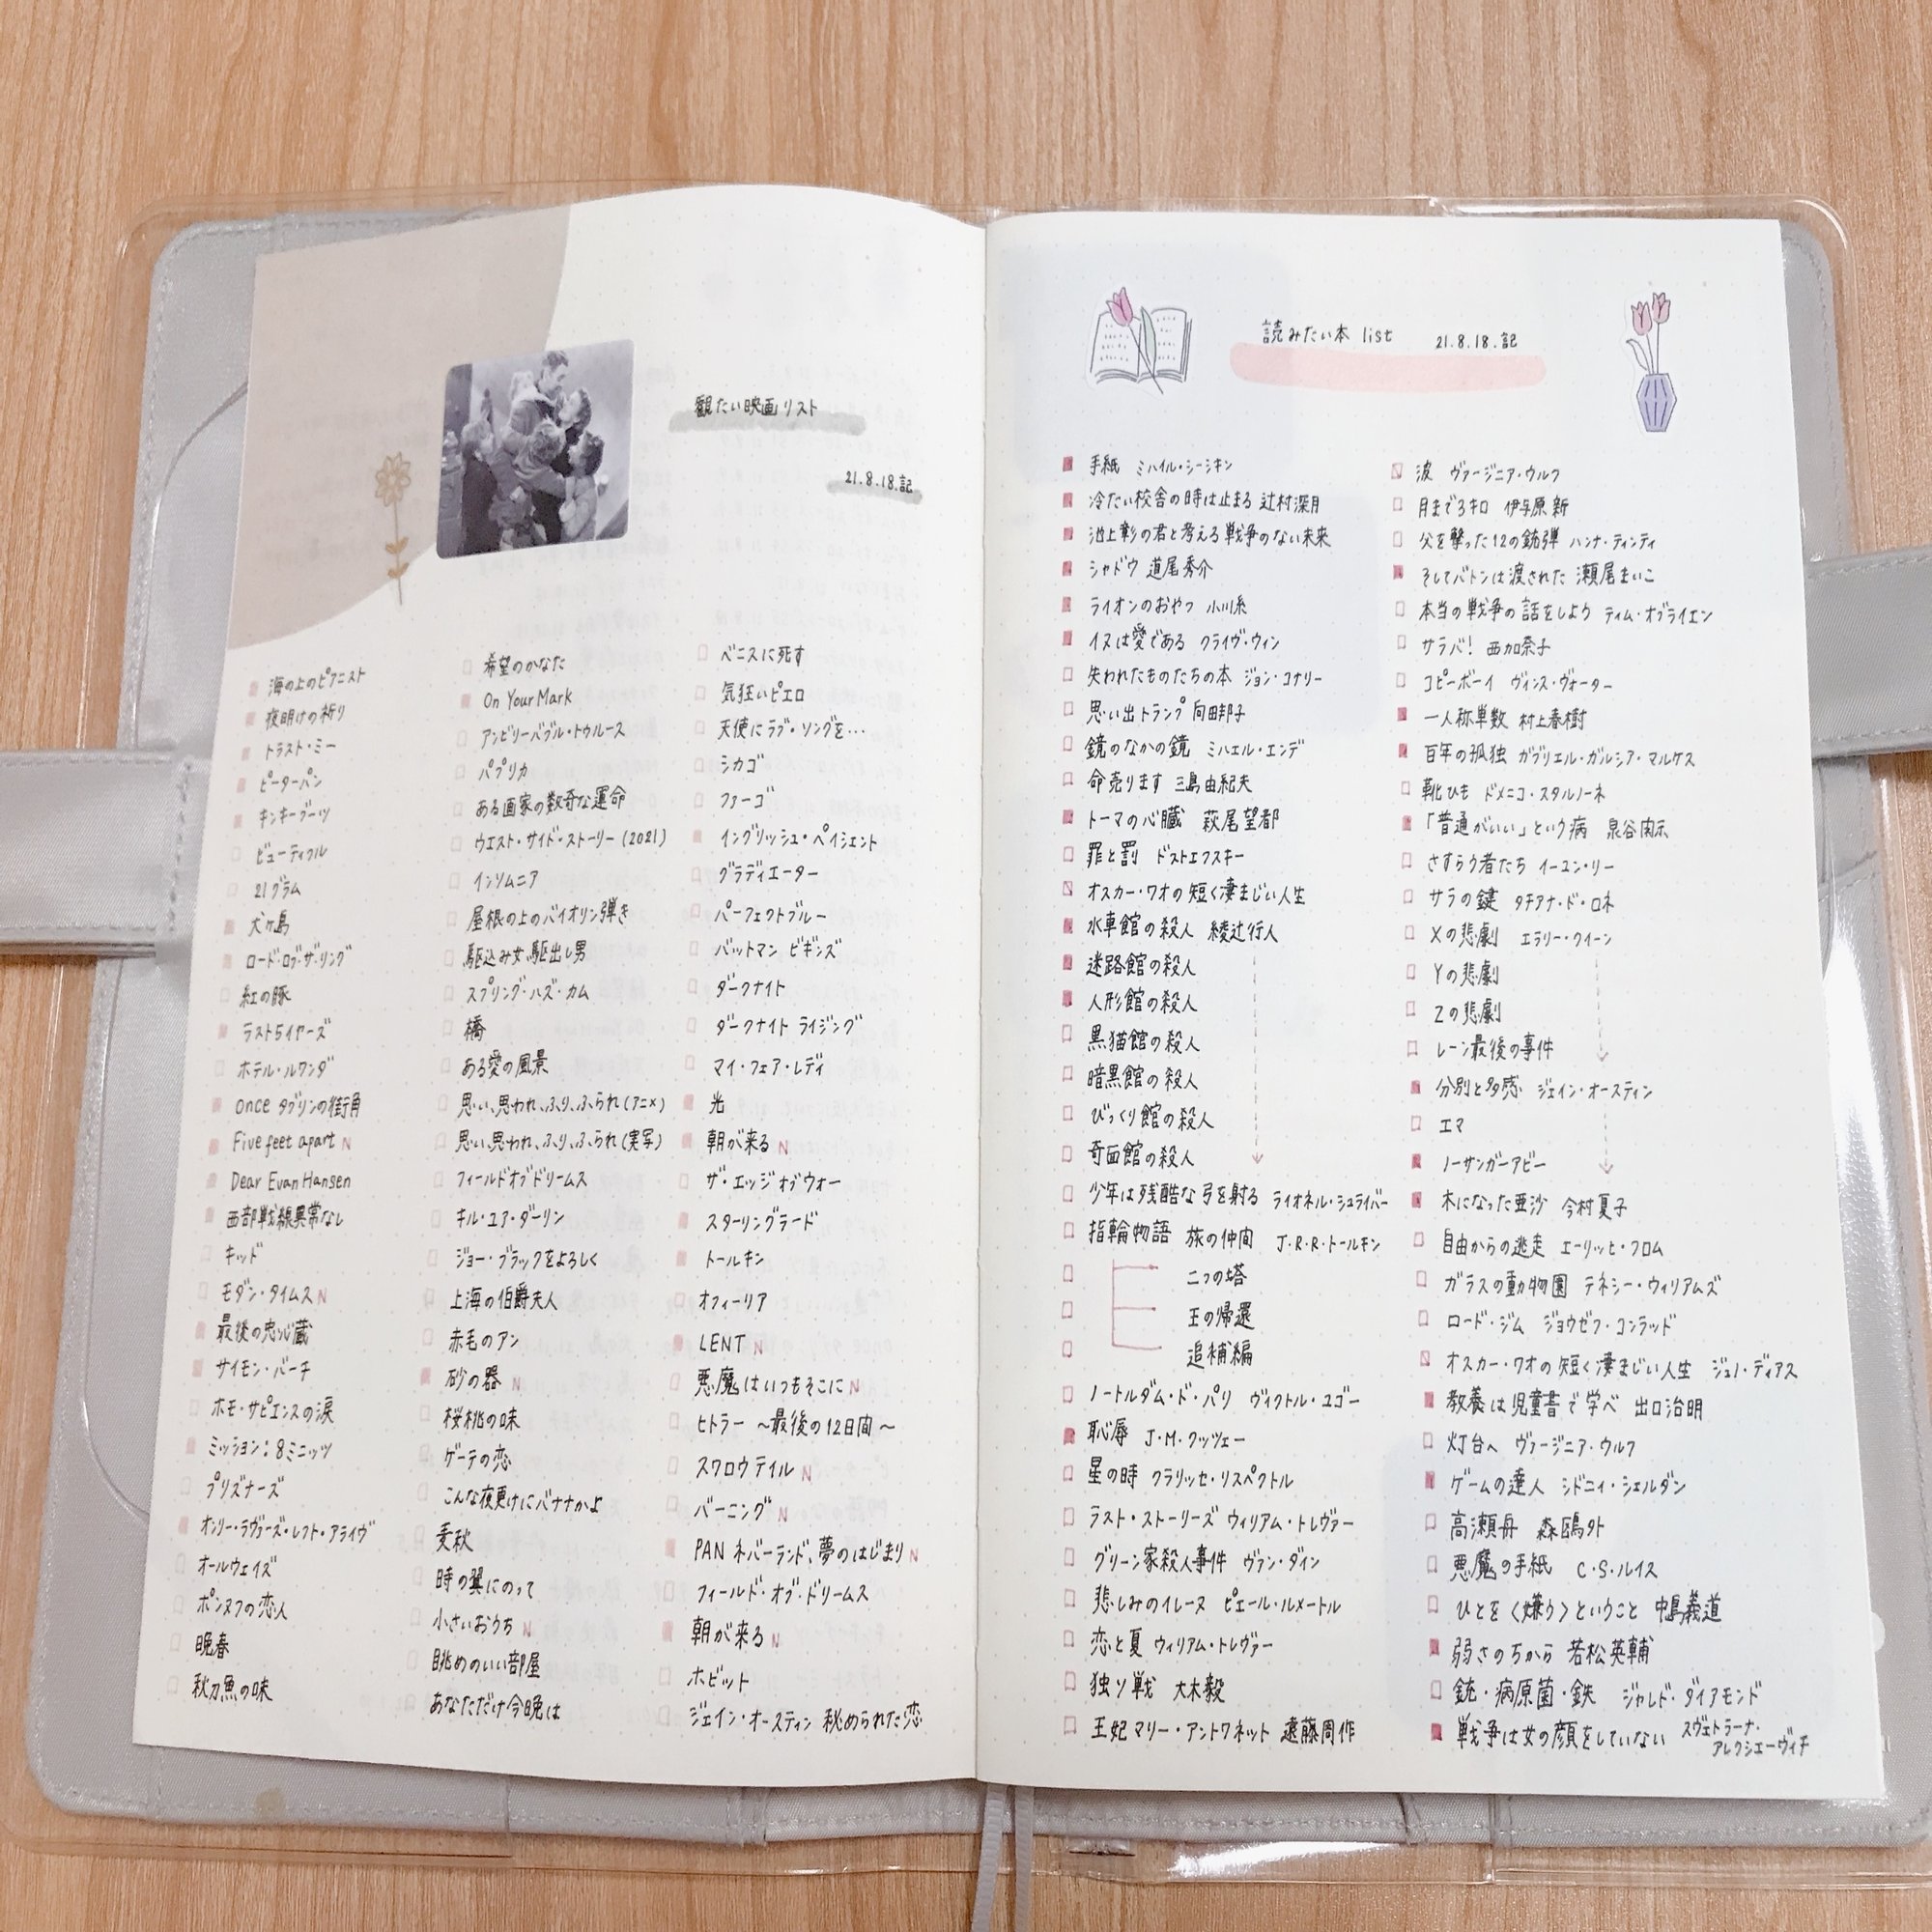 観たい映画リスト
21.8.18.記
海の上のピアニスト
夜明けの祈り
トラスト・ミー
ピーターパン
キンキーブーツ
ビューティフル
21グラム
犬ヶ島
ロード・オブ・ザ・リング
紅の豚
ラスト5イヤーズ
ホテル・ルワンダ
once ダブリンの街角
Five feet apart N
Dear Evan Hansen
西部戦線異常なし
キッド
モダン・タイムス N
最後の忠臣蔵
サイモン・バーチ
ホモ・サピエンスの涙
ミッション:8ミニッツ
プリズナーズ
オンリー・ラヴァーズ・レフト・アライヴ
オールウェイズ
ポンヌフの恋人
晩春
秋刀魚の味
希望のかなた
On Your Mark
アンビリーバブル・トゥルース
パプリカ
ある画家の数奇な運命
ウエスト・サイド・ストーリー (2021)
インソムニア
屋根の上のバイオリン弾き
駆込み女駆出し男
スプリング・ハズ・カム
橋
ある愛の風景
思い、思われ、ふり、ふられ (アニメ)
思い、思われ、ふり、ふられ (実写)
フィールドオブドリームス
キル・ユア・ダーリン
ジョー・ブラックをよろしく
上海の伯爵夫人
赤毛のアン
砂の器 N
桜桃の味
ゲーテの恋
こんな夜更けにバナナかよ
麦秋
時の翼にのって
小さいおうち N
眺めのいい部屋
あなただけ今晩は
ベニスに死す
気狂いピエロ
天使にラブ・ソングを…
シカゴ
ファーゴ
イングリッシュ・ペイシェント
グラディエーター
パーフェクトブルー
バットマン ビギンズ
ダークナイト
ダークナイト ライジング
マイ・フェア・レディ
光
朝が来る N
ザ・エッジオブウォー
スターリングラード
トールキン
オフィーリア
LENT N
悪魔はいつもそこに N
ヒトラー ～最後の12日間～
スワロウテイル N
バーニング N
PAN ネバーランド、夢のはじまり N
フィールド・オブ・ドリームス
朝が来る N
ホビット
ジェイン・オースティン 秘められた恋
読みたい本 list 21.8.18.記
手紙 ミハイル・シーシキン
冷たい校舎の時は止まる 辻村深月
池上彰の君と考える戦争のない未来
シャドウ 道尾秀介
ライオンのおやつ 小川糸
イヌは愛である クライヴ・ウィン
失われたものたちの本 ジョン・コナリー
思い出トランプ 向田邦子
鏡のなかの鏡 ミハエル・エンデ
命売ります 三島由紀夫
トーマの心臓 萩尾望都
罪と罰 ドストエフスキー
オスカー・ワオの短く凄まじい人生
水車館の殺人 綾辻行人
迷路館の殺人
人形館の殺人
黒猫館の殺人
暗黒館の殺人
びっくり館の殺人
奇面館の殺人
少年は残酷な弓を射る ライオネル・シュライバー
指輪物語 旅の仲間 J・R・R・トールキン
二つの塔
王の帰還
追補編
ノートルダム・ド・パリ ヴィクトル・ユゴー
恥辱 J・M・クッツェー
星の時 クラリッセ・リスペクトル
ラスト・ストーリーズ ウィリアム・トレヴァー
グリーン家殺人事件 ヴァン・ダイン
悲しみのイレーヌ ピエール・ルメートル
恋と夏 ウィリアム・トレヴァー
独ソ戦 大木毅
王妃マリー・アントワネット 遠藤周作
波 ヴァージニア・ウルフ
月まで3キロ 伊与原新
父を撃った12の銃弾 ハンナ・ティンティ
そしてバトンは渡された 瀬尾まいこ
本当の戦争の話をしよう ティム・オブライエン
サラバ! 西加奈子
コピーボーイ ヴィンス・ヴォーター
一人称単数 村上春樹
百年の孤独 ガブリエル・ガルシア・マルケス
靴ひも ドメニコ・スタルノーネ
「普通がいい」という病 泉谷閑示
さすらう者たち イーユン・リー
サラの鍵 タチアナ・ド・ロネ
Xの悲劇 エラリー・クイーン
Yの悲劇
Zの悲劇
レーン最後の事件
分別と多感 ジェイン・オースティン
エマ
ノーサンガーアビー
木になった亜沙 今村夏子
自由からの逃走 エーリッヒ・フロム
ガラスの動物園 テネシー・ウィリアムズ
ロード・ジム ジョウゼフ・コンラッド
オスカー・ワオの短く凄まじい人生 ジュノ・ディアス
教養は児童書で学べ 出口治明
灯台へ ヴァージニア・ウルフ
ゲームの達人 シドニィ・シェルダン
高瀬舟 森鴎外
悪魔の手紙 C・S・ルイス
ひとを〈嫌う〉ということ 中島義道
弱さのちから 若松英輔
銃・病原菌・鉄 ジャレド・ダイアモンド
戦争は女の顔をしていない スヴェトラーナ・
アレクシエーヴィチ